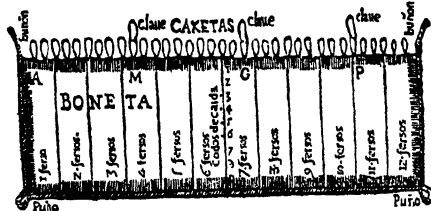 buñon clave CAXETAS clave clave buñon
A M G P
BONETA
1 ferso 2 fersos 3 fersos 4 fersos 5 fersos 6 fersos codos de caida 7 fersos 8 fersos 9 fersos 10 fersos 11 fersos 12 fersos
Puño Puño